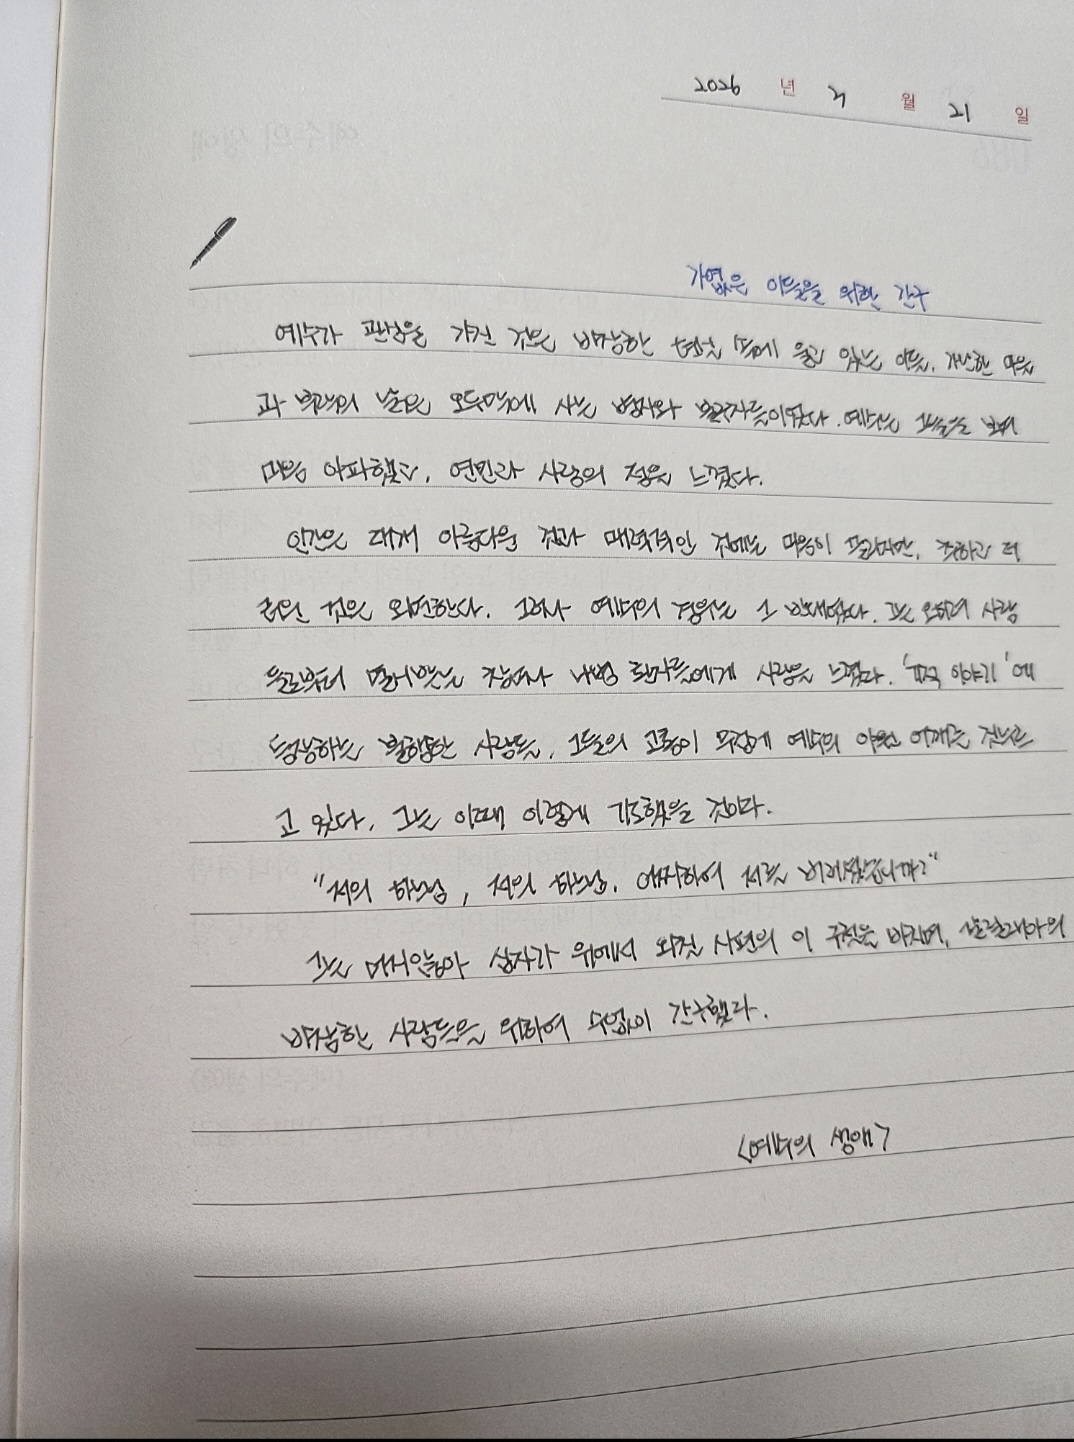 2026 년 월 21 일
가엾은 이들을 위한 간구
예수가 관심을 가진 것은 비참한 현실 속에 울고 있는 이들, 가난한 마을
과 부락의 낡은 오두막에 사는 병자와 불구자들이었다. 예수는 그들을 보며
마음 아파했고, 연민과 사랑의 정을 느꼈다.
인간은 대개 아름다운 것과 매력적인 것에는 마음이 끌리지만, 추하고 더
러운 것은 외면한다. 그러나 예수의 경우는 그 반대였다. 그는 오히려 사람
들로부터 멀어지는 나병 환자들에게 사랑을 느꼈다. '기적 이야기'에
등장하는 불행한 사람들, 그들의 고통이 무겁게 예수의 야윈 어깨를 짓누르
고 있다. 그는 이때 이렇게 기도했을 것이다.
"저의 하느님, 저의 하느님, 어찌하여 저를 버리셨습니까?"
그는 머지않아 십자가 위에서 외칠 시편의 이 구절을 바치며, 갈릴래아의
비참한 사람들을 위하여 수없이 간구했다.
<예수의 생애>